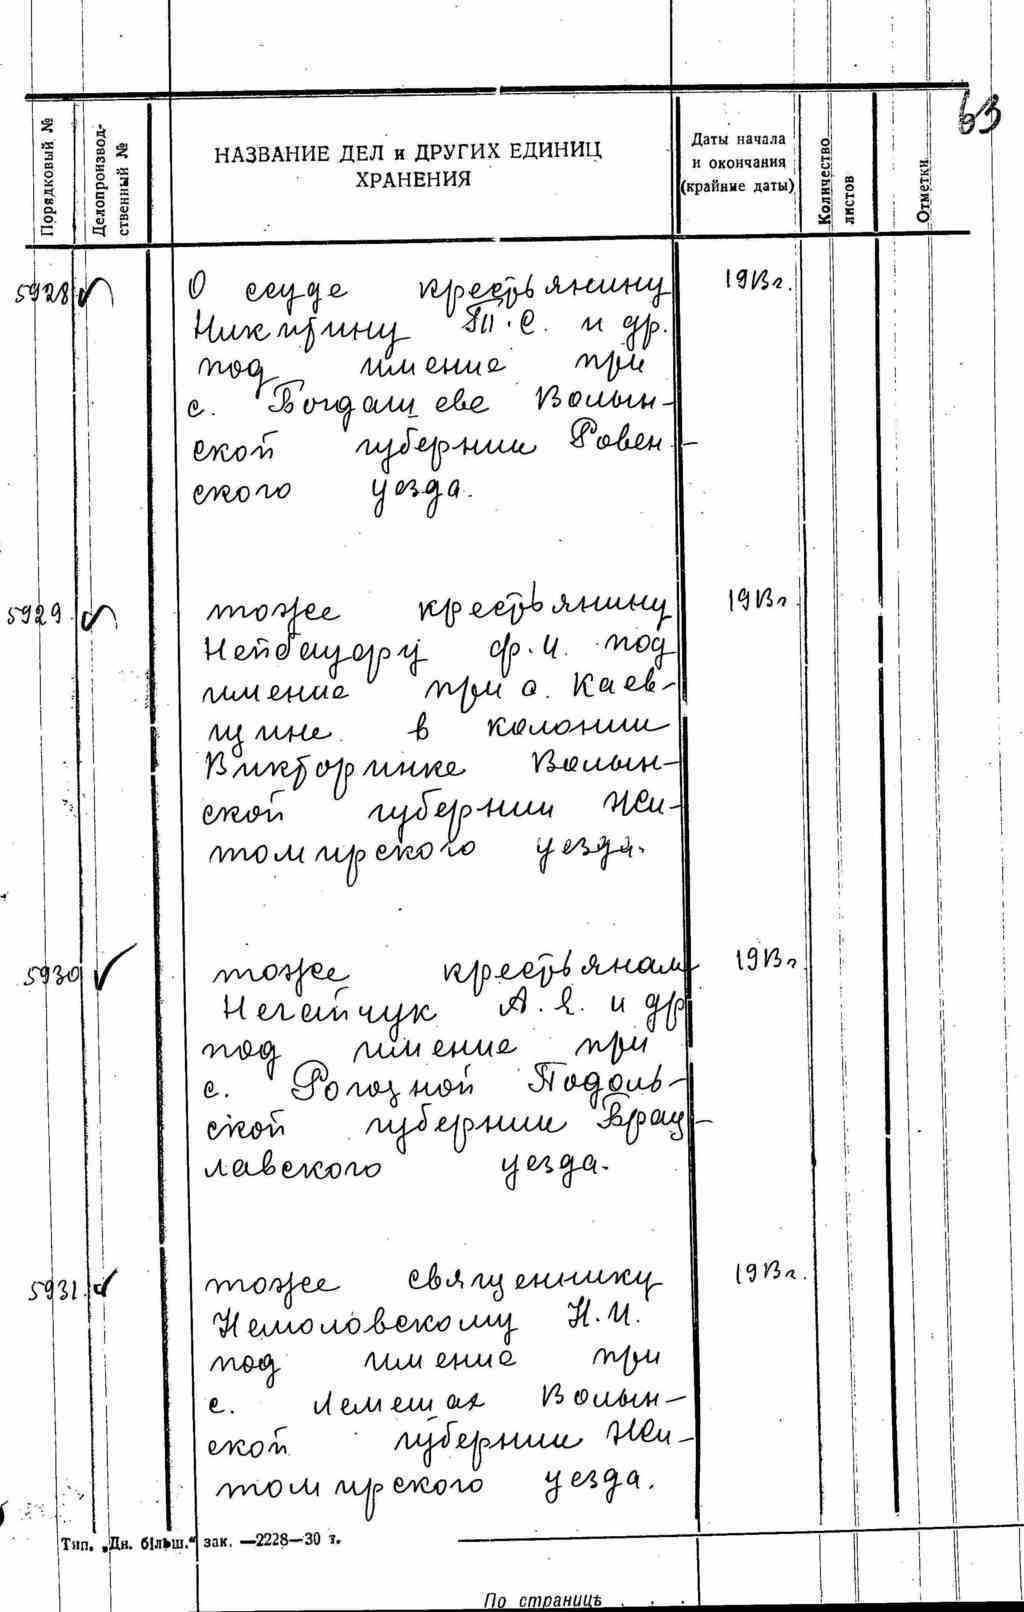 63
Порядковый №
Делопроизвод-
ственный №
НАЗВАНИЕ ДЕЛ и ДРУГИХ ЕДИНИЦ
ХРАНЕНИЯ
Даты начала
и окончания
(крайние даты)
Количество
листов
Отметки
5928 О ссуде крестьянину 1913г.
Никитину П.С. и др.
под имение при
с. Богдашеве Волын-
ской губернии Ровен-
ского уезда.
5929 тоже крестьянину 1913г
Нейбауеру Ф.И. под
имение при с. Каев-
щине в колонии
Викторинке Волын-
ской губернии Жи-
томирского уезда.
5930 тоже крестьянам 1913г
Негейчук А.Я. и др
под имение при
с. Рогозной Подоль-
ской губернии Брац-
лавского уезда.
5931. тоже священнику 1913г.
Немоловскому Н.И.
под имение при
с. Лемешах Волын-
ской губернии Жи-
томирского уезда.
Тип. „Дн. більш.“ зак. —2228—30 т.
По странице . . .